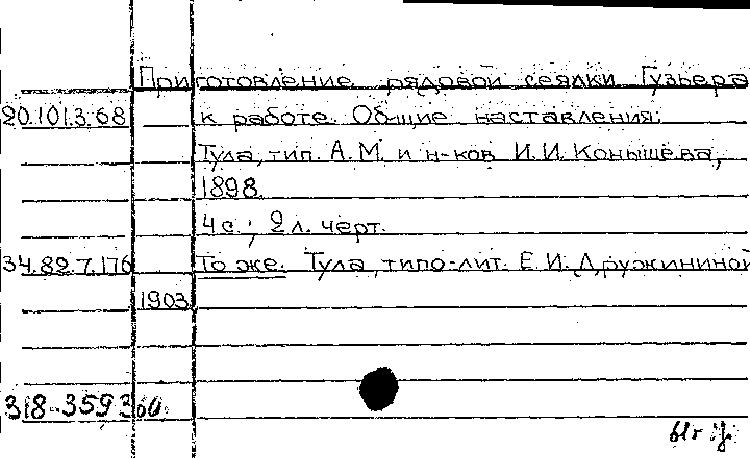 Приготовление рядовой сеялки Гузьера
20.101.3.68 к работе. Общие наставления.
Тула, тип. А.М. и н-ков И.И. Конышёва,
1898.
4 с.; 2 л. черт.
34.82.7.176 То же. Тула, типо-лит. Е.И. Дружининой
1903
318-359360.